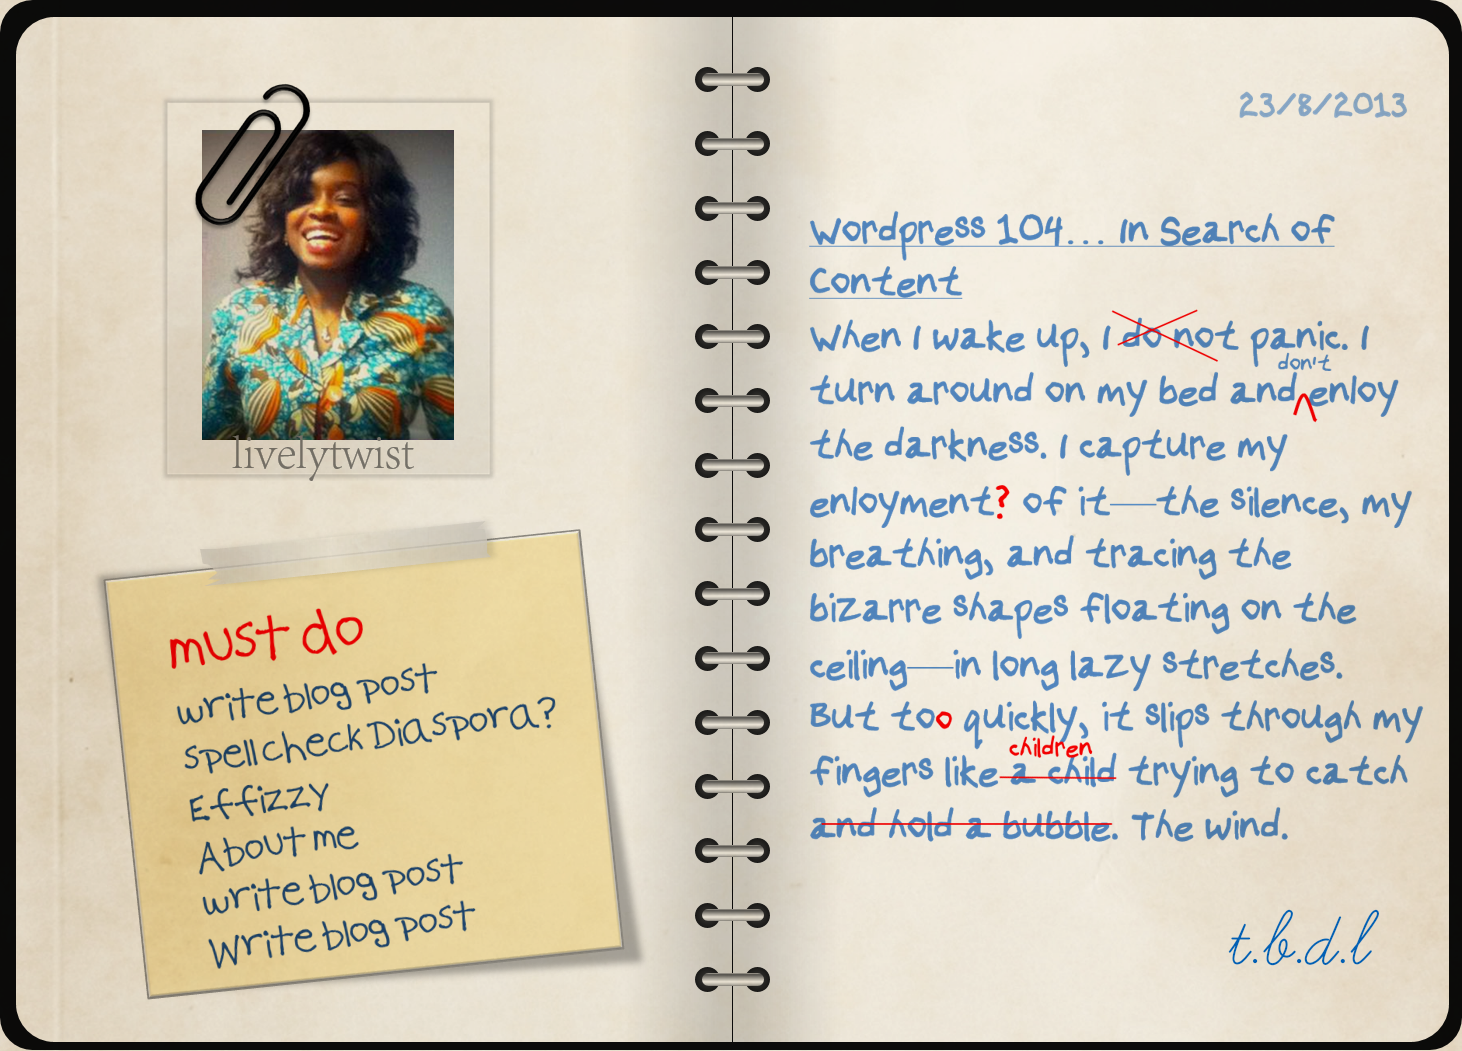 livelytwist
must do
write blog post
spellcheck Diaspora?
Effizzy
About me
write blog post
Write blog post
23/8/2013
Wordpress 104... In Search of
Content
When I wake up, I do not panic. I
don't
turn around on my bed and enloy
the darkness. I capture my
enloyment? of it—the silence, my
breathing, and tracing the
bizarre shapes floating on the
ceiling—in long lazy stretches.
But too quickly, it slips through my
children
fingers like a child trying to catch
and hold a bubble. The wind.
t.b.d.l